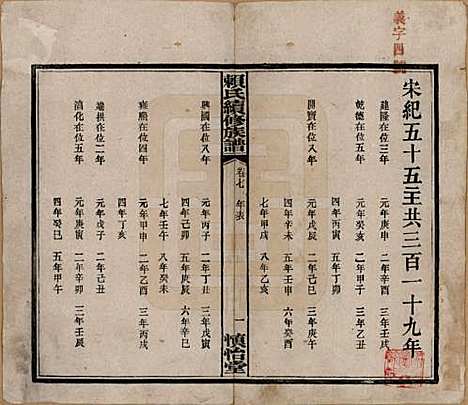 義字四號
宋紀五十五主共三百一十九年
建隆在位三年 元年庚申 二年辛酉 三年壬戌
乾德在位五年 元年癸亥 二年甲子 三年乙丑
四年丙寅 五年丁卯
開寶在位八年 元年戊辰 二年己巳 三年庚午
四年辛未 五年壬申 六年癸酉
七年甲戌 八年乙亥
賴氏續修族譜 卷七 年表 一 慎怡堂
興國在位八年 元年丙子 二年丁丑 三年戊寅
四年己卯 五年庚辰 六年辛巳
七年壬午 八年癸未
雍熙在位四年 元年甲申 二年乙酉 三年丙戌
四年丁亥
端拱在位二年 元年戊子 二年己丑
淳化在位五年 元年庚寅 二年辛卯 三年壬辰
四年癸巳 五年甲午